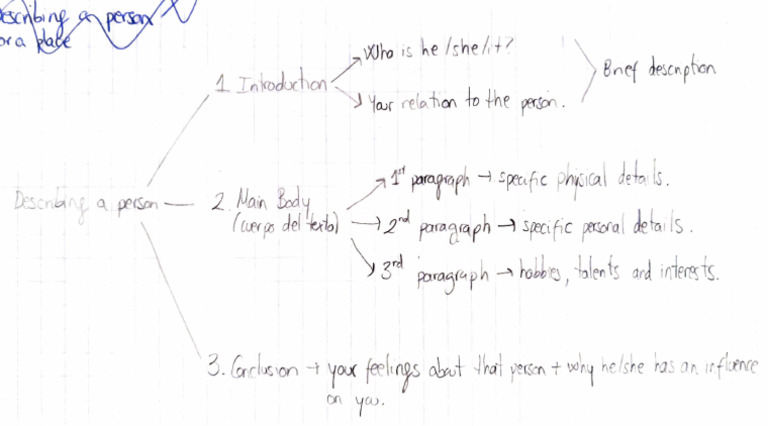 Describing a person
or a place
1. Introduction
Who is he/she/it?
Your relation to the person.
Brief description
Describing a person
2. Main Body
(cuerpo del texto)
1st paragraph → specific physical details.
2nd paragraph → specific personal details.
3rd paragraph → hobbies, talents and interests.
3. Conclusion → your feelings about that person + why he/she has an influence
on you.